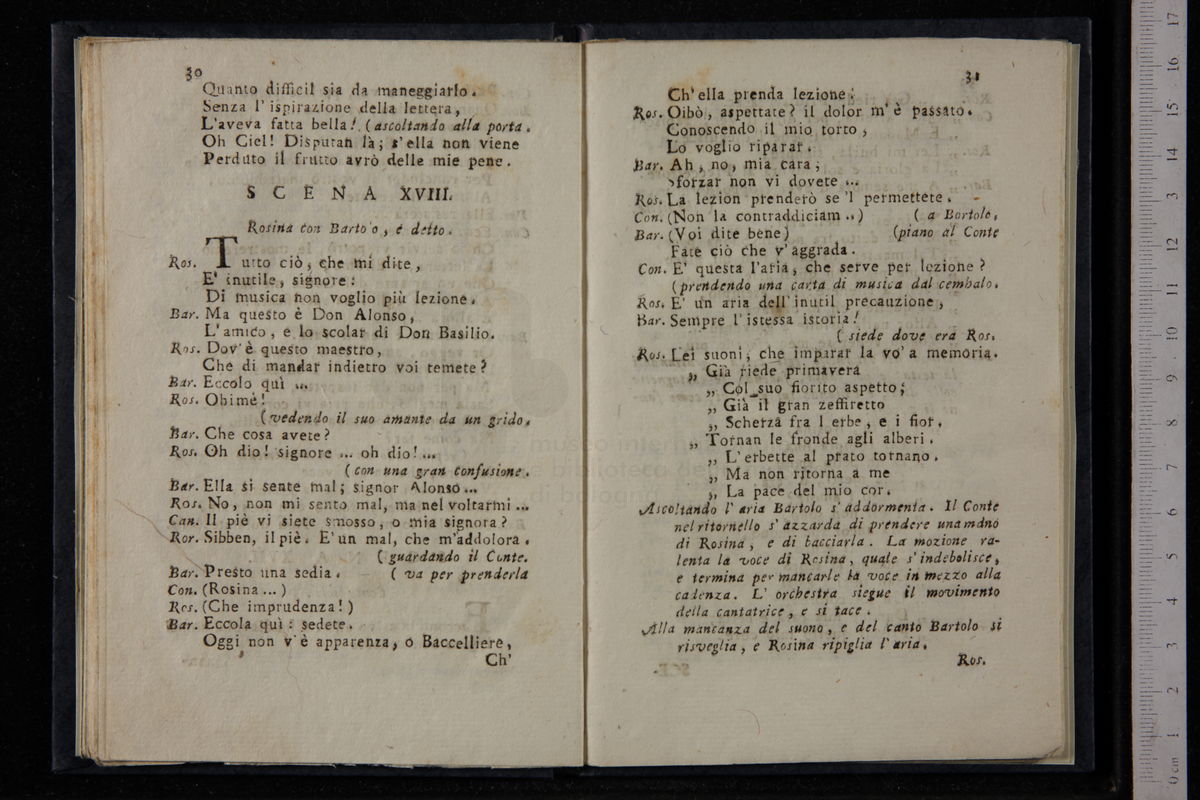 30
Quanto difficil sia da maneggiarlo.
Senza l'ispirazione della lettera,
L'aveva fatta bella! (ascoltando alla porta.
Oh Ciel! Disputan là; s'ella non viene
Perduto il frutto avrò delle mie pene.
SCENA XVIII.
Rosina con Barto o, e detto.
Ros. Tutto ciò, che mi dite,
E' inutile, signore:
Di musica non voglio più lezione.
Bar. Ma questo è Don Alonso,
L'amico, e lo scolar di Don Basilio.
Ros. Dov'è questo maestro,
Che di mandar indietro voi temete?
Bar. Eccolo quì ...
Ros. Ohimè!
(vedendo il suo amante da un grido.
Bar. Che cosa avete?
Ros. Oh dio! signore ... oh dio! ...
(con una gran confusione.
Bar. Ella si sente mal; signor Alonso ...
Ros. No, non mi sento mal, ma nel voltarmi ...
Can. Il piè vi siete smosso, o mia signora?
Ror. Sibben, il piè. E' un mal, che m'addolora.
(guardando il Conte.
Bar. Presto una sedia. (va per prenderla
Con. (Rosina ...)
Ros. (Che imprudenza!)
Bar. Eccola quì: sedete.
Oggi non v'è apparenza, o Baccelliere,
Ch'
31
Ch'ella prenda lezione:
Ros. Oibò, aspettate? il dolor m'è passato.
Conoscendo il mio torto,
Lo voglio riparar.
Bar. Ah, no, mia cara;
Sforzar non vi dovete ...
Ros. La lezion prenderò se 'l permettete.
Con. (Non la contraddiciam ..) (a Bortolo,
Bar. (Voi dite bene) (piano al Conte
Fate ciò che v'aggrada.
Con. E' questa l'aria, che serve per lezione?
(prendendo una carta di musica dal cembalo.
Ros. E' un aria dell'inutil precauzione,
Bar. Sempre l'istessa istoria!
(siede dove era Ros.
Ros. Lei suoni, che imparar la vo' a memoria.
„ Già riede primavera
„ Col suo fiorito aspetto;
„ Già il gran zeffiretto
„ Scherza fra l erbe, e i fior.
„ Tornan le fronde agli alberi.
„ L'erbette al prato tornano.
„ Ma non ritorna a me
„ La pace del mio cor.
Ascoltando l'aria Bartolo s'addormenta. Il Conte
nel ritornello s'azzarda di prendere una mano
di Rosina, e di bacciarla. La mozione ra-
lenta la voce di Rosina, quale s'indebolisce,
e termina per mancarle la voce in mezzo alla
cadenza. L'orchestra siegue il movimento
della cantatrice, e si tace.
Alla mancanza del suono, e del canto Bartolo si
risveglia, e Rosina ripiglia l'aria.
Ros.